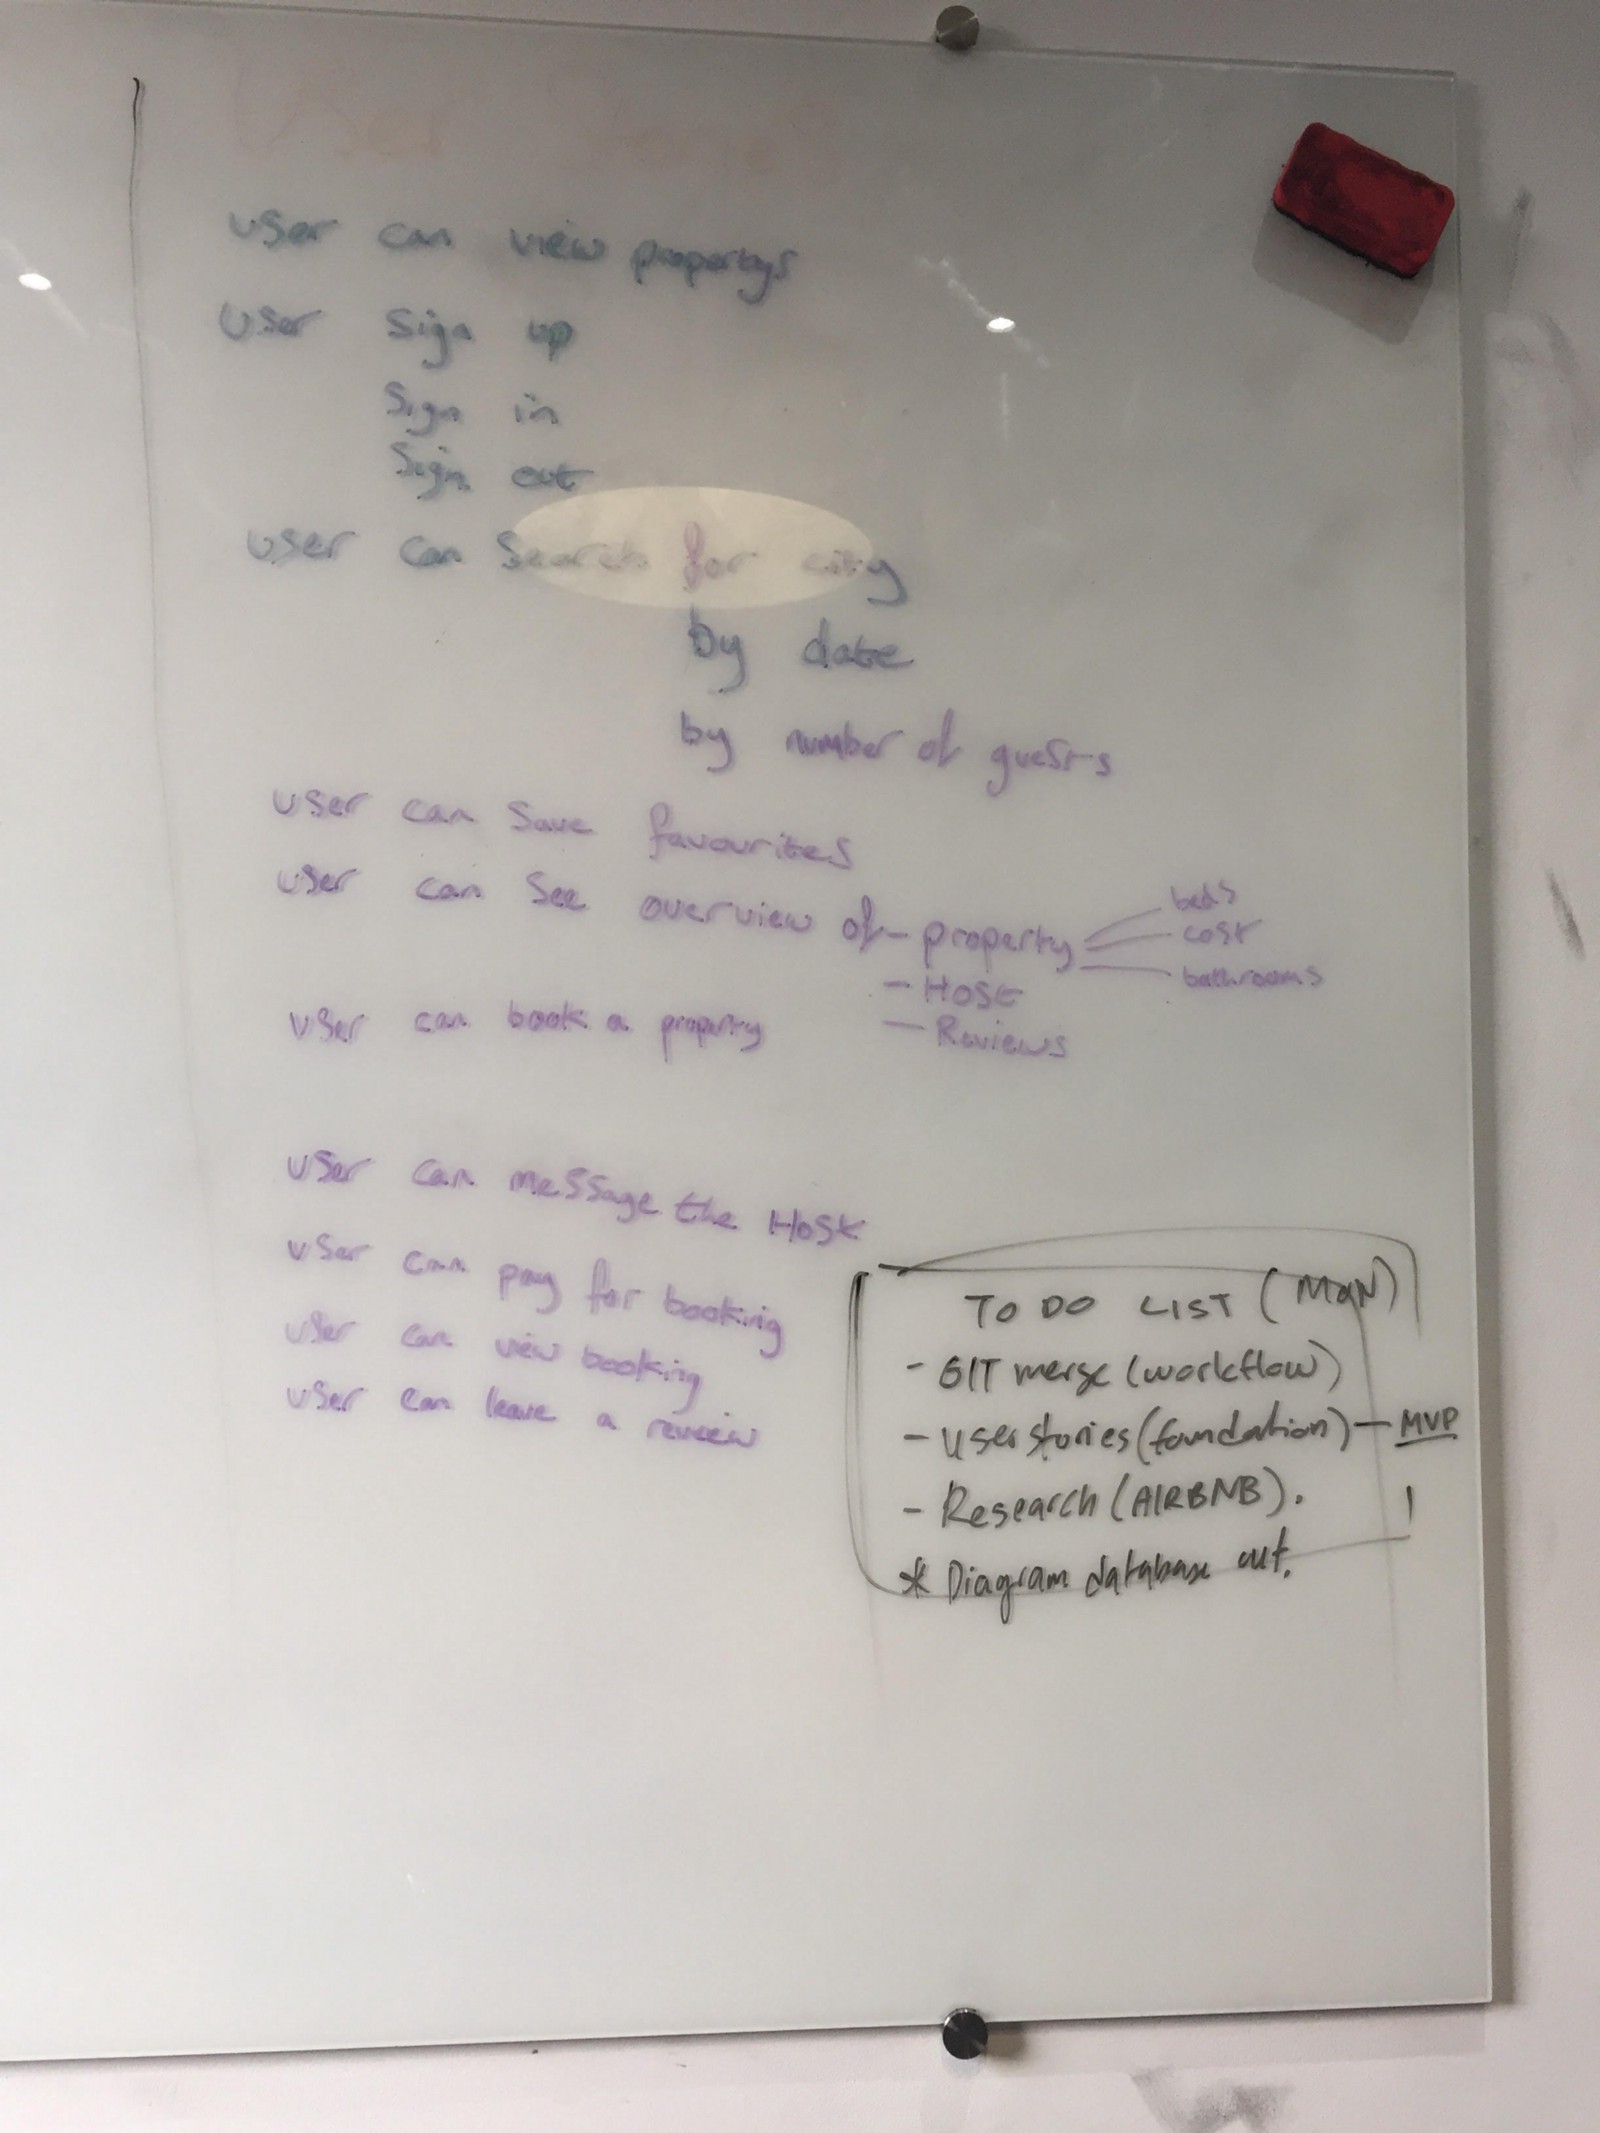 User
User can view propertys
User Sign up
Sign in
Sign out
User can Search for city
by date
by number of guests
User can Save favourites
User can See overview of - property
beds
cost
bathrooms
- Host
- Reviews
User can book a property
User can message the Host
User can pay for booking
User can view booking
User can leave a review
TO DO LIST (MON)
- GIT merge (workflow)
- User stories (foundation) - MVP
- Research (AIRBNB).
* Diagram database out.